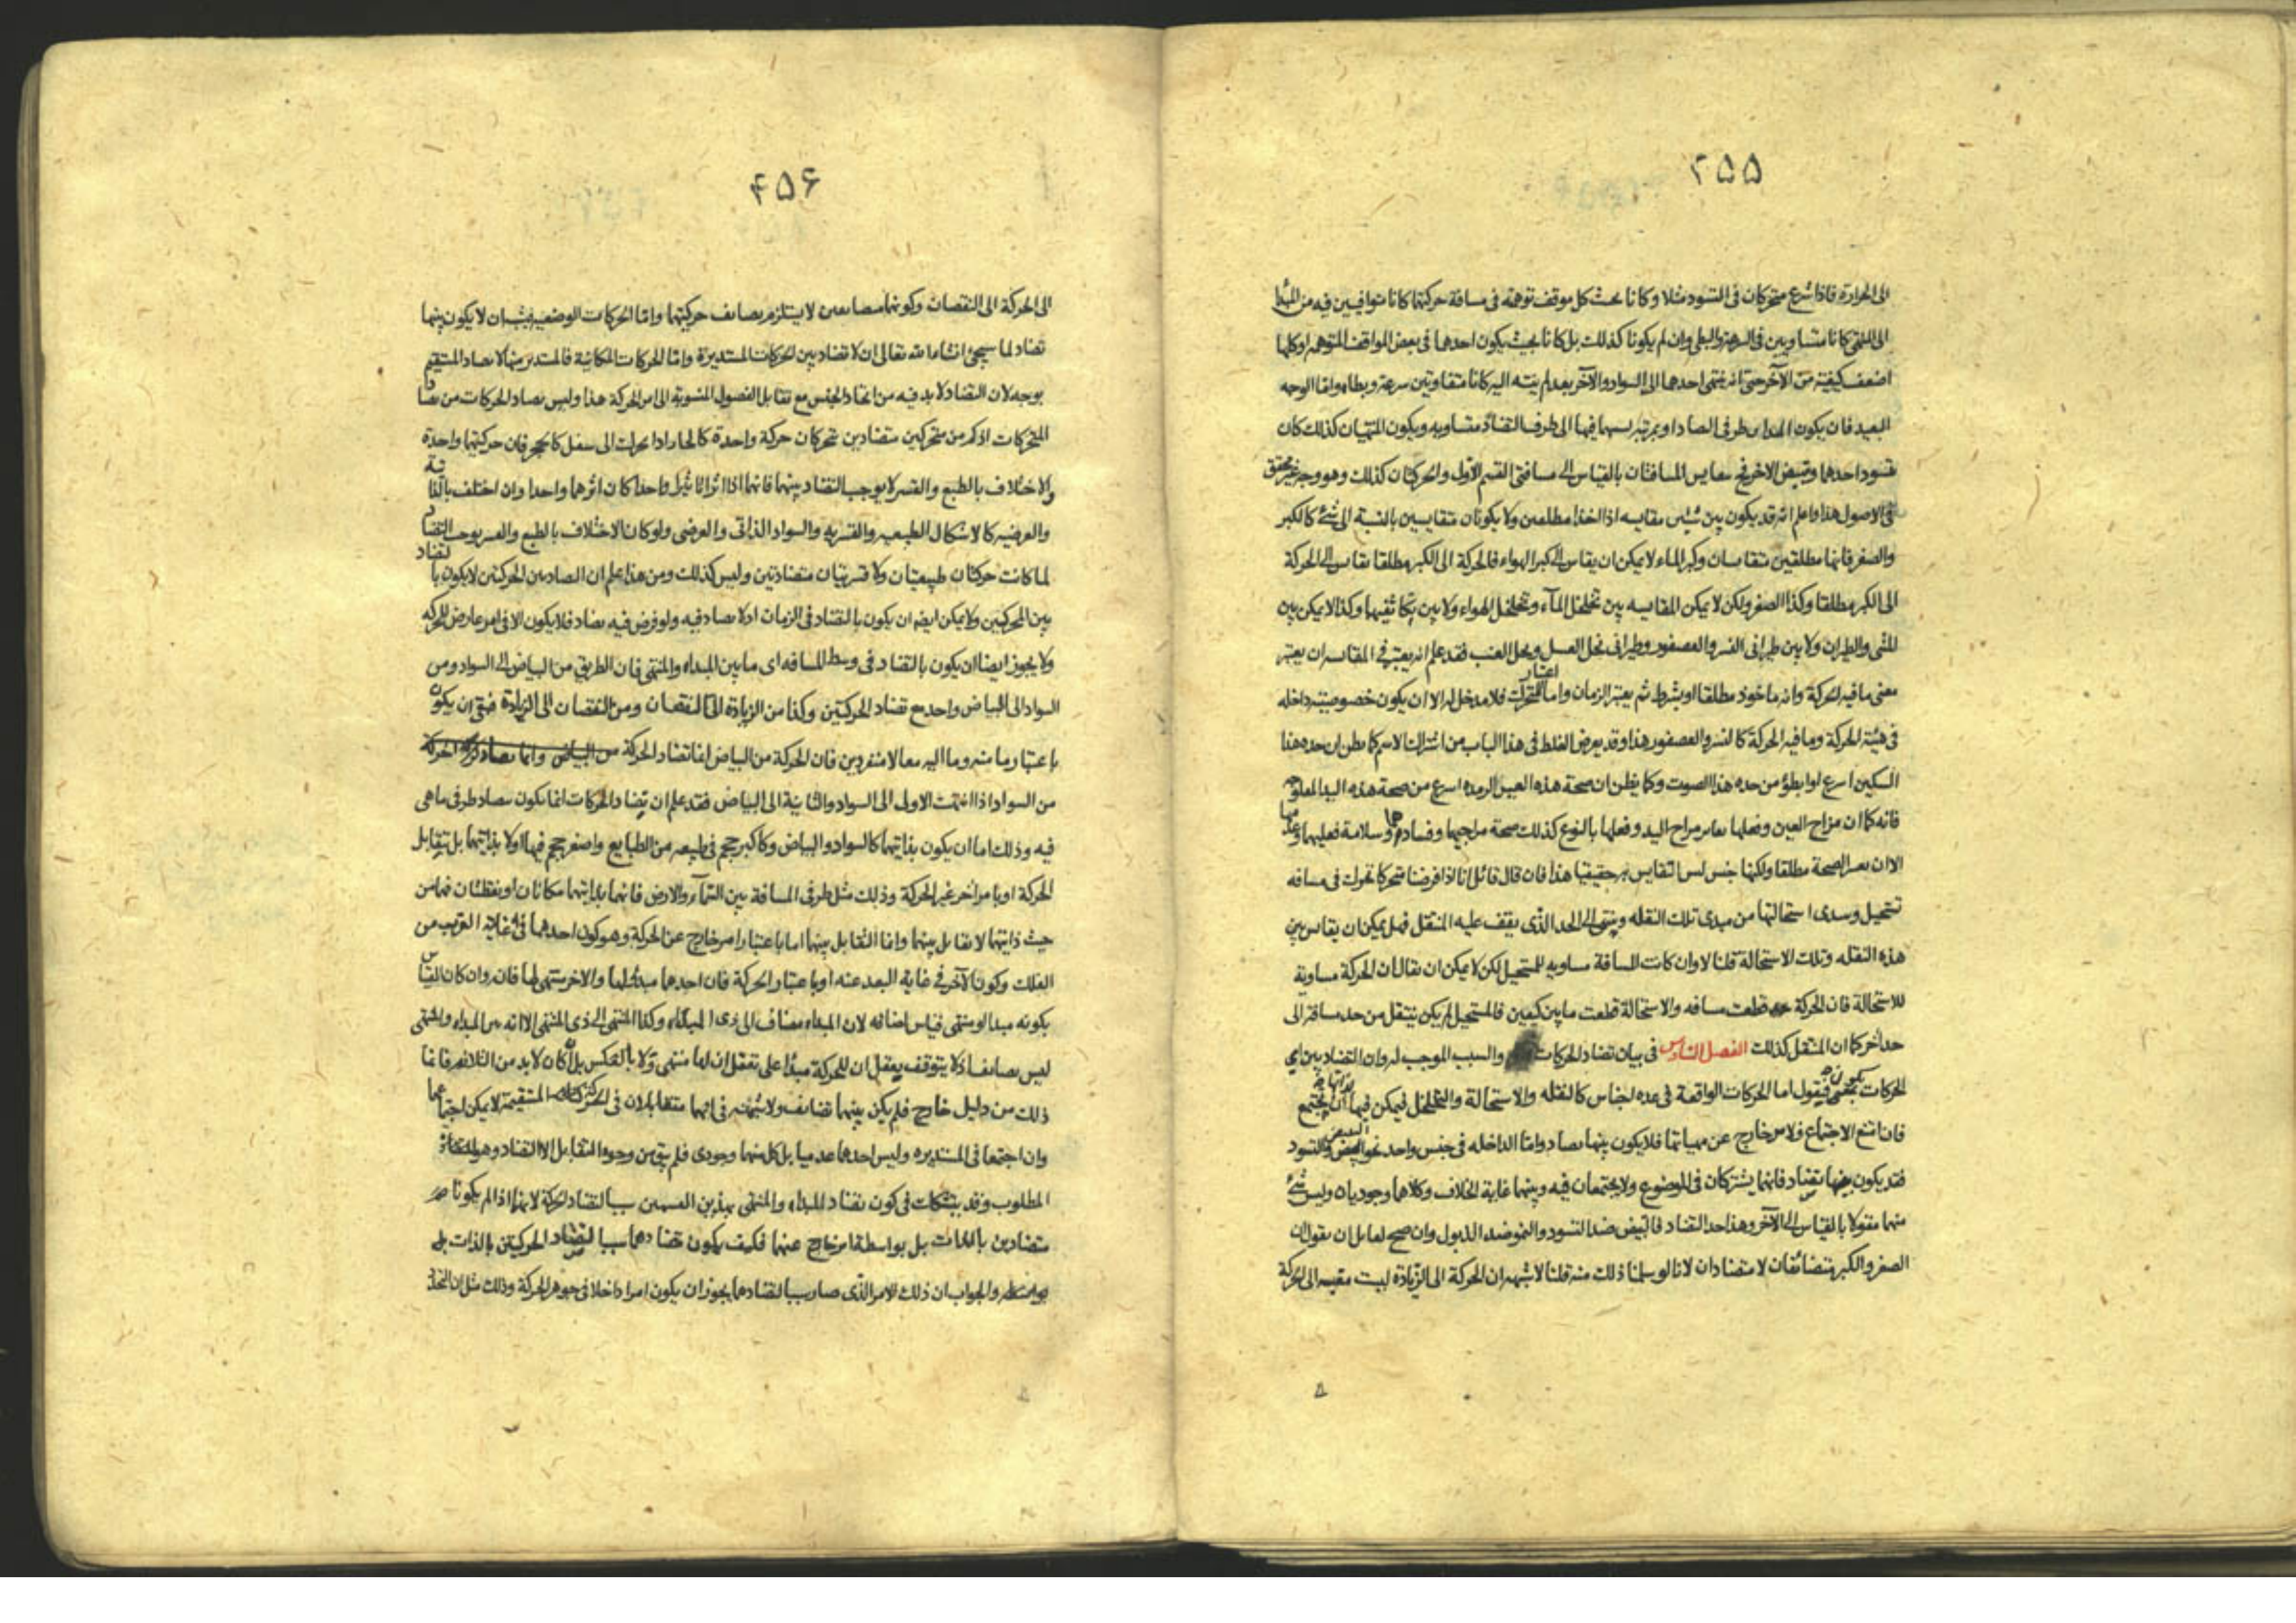 ٢٥٥
الى الحرارة فاذا شرع متحركان فى التسود مثلا وكانا بحيث كل موقف توهمه فى مسافة حركتهما كانا متوافيين فيه من المبدأ
الى المنتهى كانا متساويين فى السرعة والبطى وان لم يكونا كذلك بل كانا بحيث يكون احدهما فى بعض المواقف المتوهمه اوكلها
اضعف كيفية من الآخر حتى انه ينتهى احدهما الى السواد والآخر بعد لم ينته اليه كانا متفاوتين سرعة وبطا واما الوجه
البعيد فان يكون طرفى الى طرف التضاد متساويه ويكون المنتهيان كذلك كان
تسود احدهما وتبيض الاخر فح يقايس المسافتان بالقياس الى مسافتى القسم الاول والحركتان كذلك وهو وجه غير محقق
فى الاصول هذا واعلم انه قد يكون بين شيئين مقايسه اذا اخذا مطلقين ولا يكونان متقايسين بالنسبة الى شئ كالكبر
والصغر فانهما مطلقين متقايسان وكبر الماء لا يمكن ان يقاس الى كبر الهواء فالحركة الى الكبر مطلقا يقاس الى الحركة
الى الكبر مطلقا وكذا الصغر ولكن لا يمكن المقايسه بين تخلخل المآء وتخلخل الهواء ولا بين تكاثفيهما وكذا لا يمكن بين
المشى والطيران ولا بين طيرانى النسر والعصفور وطيرانى نحل العسل ونحل العنب فقد علم انه يعتبر فى المقايسه ان يعتبر
معنى ما فيه الحركة وانه ماخوذ مطلقا او بشرط ثم يعتبر الزمان واما اعتبار المتحرك فلا مدخل له الا ان يكون خصوصيته داخله
فى هيئة الحركة وما فيه الحركة كالنسر والعصفور هذا وقد يعرض الغلط فى هذا الباب من اشتراك الاسم كما يظن ان حده هذا
السكين اسرع او ابطؤ من حده هذا الصوت وكما يظن ان صحة هذه العين الرمده اسرع من صحة هذه اليد المفلوجه
فانه كما ان مزاج العين وفعلها يغاير مزاج اليد وفعلها بالنوع كذلك صحة مزاجيهما وفسادهما وسلامة فعليهما وعدمها
الا ان يعتبر الصحة مطلقا ولكنها جنس ليس التقايس به حقيقيا هذا فان قال قائل انا اذا فرضنا متحركا تحرك فى مسافه
تستحيل وسدى استحالتها من مبدى تلك النقله وينتهى الى الحد الذى يقف عليه المنتقل فهل يمكن ان يقاس بين
هذه النقله وتلك الاستحالة قلنا لا وان كانت المسافة مساويه للمستحيل لكن لا يمكن ان يقال ان الحركة مساوية
للاستحالة فان الحركة قطعت مسافه والاستحالة قطعت ما بين كيفين فالمستحيل لم يكن ينتقل من حد مسافة الى
حد آخر كما ان المنتقل كذلك الفصل السادس فى بيان تضاد الحركات والسبب الموجب له وان التضاد بين اى
الحركات يكون فنقول اما الحركات الواقعة فى عده اجناس كالنقله والاستحالة والتخلخل فيمكن فيها ان يجتمع
فان امتنع الاجتماع فلامر خارج عن مهياتها فلا يكون بينهما تضاد واما الداخله فى جنس واحد نحو التبيض والتسود
فقد يكون بينهما تضاد فانهما يشتركان فى الموضوع ولا يجتمعان فيه وبينهما غاية الخلاف وكلاهما وجوديان وليس شئ
منهما مقولا بالقياس الى الآخر وهذا حد التضاد فالتبيض ضد التسود والنمو ضد الذبول وان صح لقايل ان يقول ان
الصغر والكبر متضائفان لا متضادان لانا لو سلمنا ذلك منه قلنا لا شبهه ان الحركة الى الزيادة ليست مقيسه الى الحركة
۴۵۶
الى الحركة الى النقصان وكونهما متضايفين لا يستلزم تضايف حركتيهما واما الحركات الوضعيه فيشبه ان لا يكون بينهما
تضاد لما سيجئ انشاء الله تعالى ان لا تضاد بين الحركات المستديرة واما الحركات المكانية فالمستدير منها لا يضاد المستقيم
بوجه لان التضاد لا بد فيه من اتحاد الجنس مع تقابل الفصول المنسوبة الى امر الحركة هذا وليس تضاد الحركات من تضاد
المتحركات اذ كم من متحركين متضادين تحركان حركة واحدة كالحار اذا تحرك الى سفل كالحجر فان حركتيهما واحدة
والاختلاف بالطبع والقسر لا يوجب التضاد بينهما فانهما اذا اثرا تاثيرا واحدا كان اثرهما واحدا وان اختلف بالذاتية
والعرضيه كالاشكال الطبيعيه والقسريه والسواد الذاتى والعرضى ولو كان الاختلاف بالطبع والقسر يوجب التضاد
لما كانت حركتان طبيعيتان ولا قسريتان متضادتين وليس كذلك ومن هذا يعلم ان التضاد بين الحركتين لا يكون بالتضاد
بين المحركين ولا يمكن ايضا ان يكون بالتضاد فى الزمان اذ لا تضاد فيه ولو فرض فيه تضاد فلا يكون الا فى امر عارض للحركه
ولا يجوز ايضا ان يكون بالتضاد فى وسط المسافه اى ما بين المبداء والمنتهى فان الطريق من البياض الى السواد ومن
السواد الى البياض واحد مع تضاد الحركتين وكذا من الزيادة الى النقصان ومن النقصان الى الزيادة فبقى ان يكون
باعتبار ما منه وما اليه معا لا منفردين فان الحركة من البياض انما تضاد الحركة من البياض وانما تضاد الحركة
من السواد اذا انتهت الاولى الى السواد والثانية الى البياض فقد علم ان تضاد الحركات انما يكون بتضاد طرفى ما هى
فيه وذلك اما ان يكون بذاتيهما كالسواد والبياض وكاكبر حجم فى طبيعه من الطبايع واصغر حجم فيها او لا بذاتيهما بل بتقابل
الحركة او بامر آخر غير الحركة وذلك مثل طرفى المسافة بين السمآء والارض فانهما بذاتيهما مكانان او نقطتان فهما من
حيث ذاتيهما لا تقابل بينهما وانما التقابل بينهما اما باعتبار امر خارج عن الحركة وهو كون احدهما فى غاية القرب من
الفلك وكون الآخر فى غاية البعد عنه او باعتبار الحركة فان احدهما مبدأ لها والاخر منتهى لها فانه وان كان القياس
بكونه مبدا او منتهى قياس اضافه لان المبداء مضاف الى ذى المبداء وكذا المنتهى الى ذى المنتهى الا انه بين المبداء والمنتهى
ليس تضايفا اذ لا يتوقف تعقل ان للحركة مبدأ على تعقل ان لها منتهى ولا بالعكس بل ان كان لا بد من التلازم فانما
ذلك من دليل خارج فلم يكن بينهما تضايف ولا شبهه فى انهما متقابلان فى الحركة المستقيمة لا يمكن اجتماعهما
وان اجتمعا فى المستديره وليس احدهما عدميا بل كل منهما وجودى فلم يبق من وجوه التقابل الا التضاد وهو
المطلوب وقد يتشكك فى كون تضاد المبداء والمنتهى بهذين القسمين سببا لتضاد الحركة لانهما اذا لم يكونا
متضادين بالذات بل بواسطة امر خارج عنهما فكيف يكون تضادهما سببا لتضاد الحركتين بالذات بل
بواسطه والجواب ان ذلك الامر الذى صار سببا لتضادهما يجوز ان يكون امرا داخلا فى جوهر الحركة وذلك مثل ان